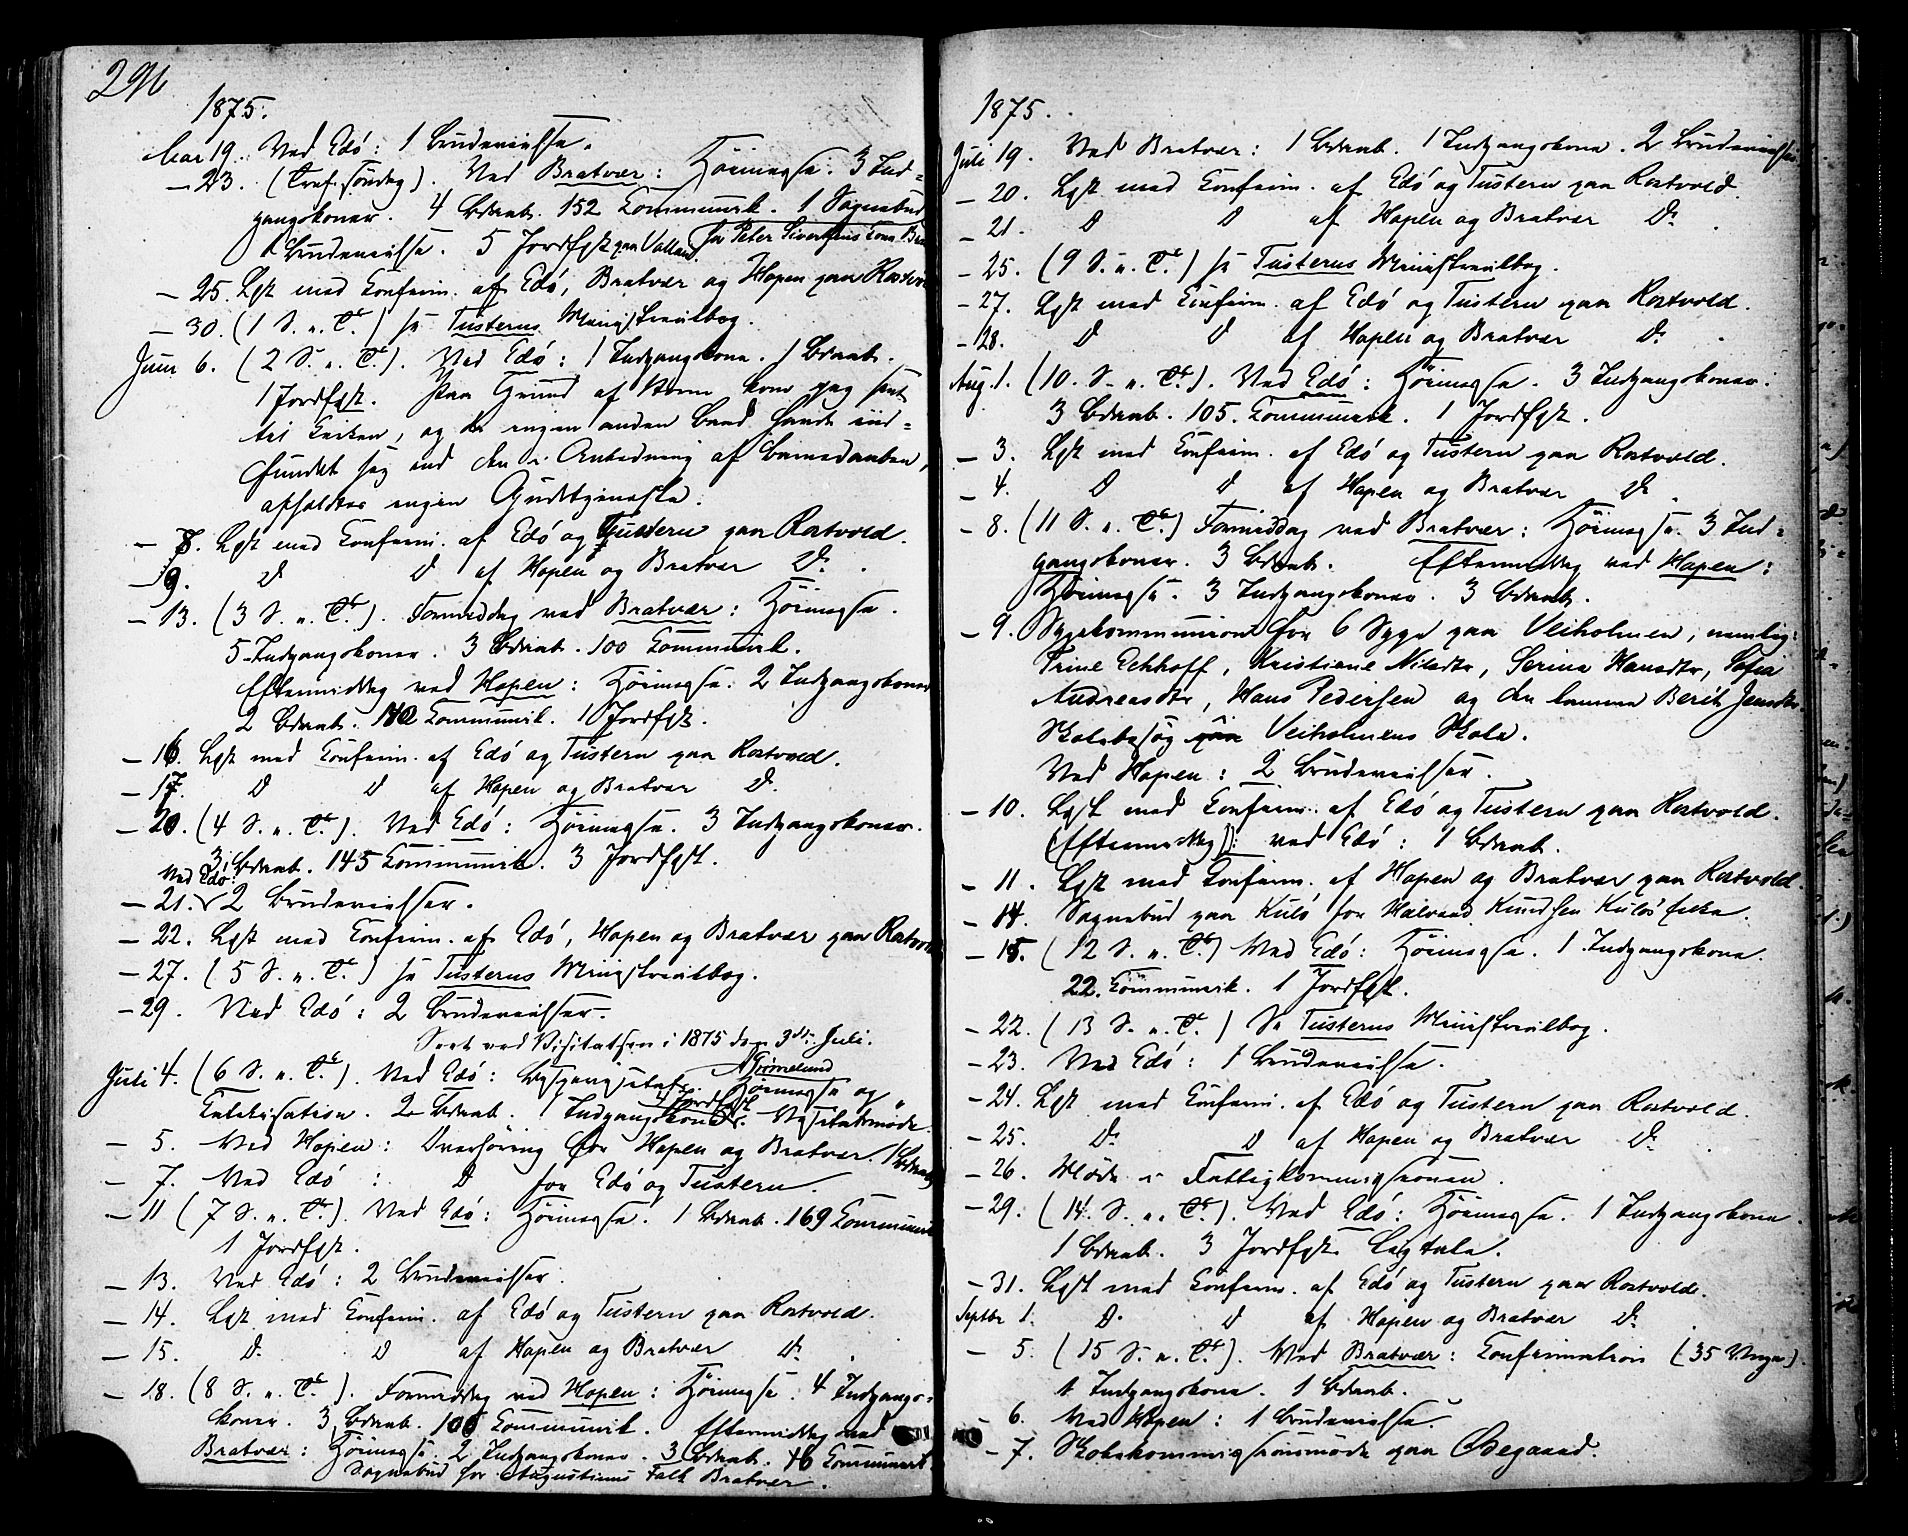 296
1875.
Mai 19. Ved Edö: 1 Brudevielse.
— 23. (Tref. söndag). Ved Bratvær: Höimesse. 3 Ind=
gangskoner. 4 Bdaab. 152 Communik. 1 Sognebud
1 Brudevielse. 5 Jordfest paa Valland. for Peter Sivertsens Kone
— 25. Læst med Confirm. af Edö, Bratvær og Hopen paa Rostvold
— 30. (1 S. e. Tr.) se Tusterns Ministerialbog.
Juni 6. (2 S. e. Tr.). Ved Edö: 1 Indgangskone. 1 Bdaab.
1 Jordfest. Paa Grund af Storm kom jeg sent
til Kirken, og da ingen anden Baad havde ind=
fundet sig end den i Anledning af Barnedaaben,
afholdtes ingen Gudstjeneste.
— 8. Læst med Confirm. af Edö og Tustern paa Rostvold.
— 9. D D af Hopen og Bratvær D.
— 13. (3 S. e. Tr.). Formiddag ved Bratvær: Höimesse.
5 Indgangskoner. 3 Bdaab. 100 Communik.
Eftermiddag ved Hopen: Höimesse. 2 Indgangskoner
2 Bdaab. Communik. 1 Jordfest.
— 16. Læst med Confirm. af Edö og Tustern paa Rostvold.
— 17. D D af Hopen og Bratvær D.
— 20. (4 S. e. Tr.). Ved Edö: Höimesse. 3 Indgangskoner.
3 Bdaab. 145 Communik. 3 Jordfest.
Ved Edö:
— 21. 2 Brudevielser.
— 22. Læst med Confirm. af Edö, Hopen og Bratvær paa Rostvold
— 27. (5 S. e. Tr.) se Tusterns Ministerialbog.
— 29. Ved Edö: 2 Brudevielser.
Seet ved Visitatsen i 1875 den 3die Juli.
Grimelund
Juli 4. (6 S. e. Tr.). Ved Edö: Bispevisitats. Höimesse og
Catechisation. 2 Bdaab. 1 Indgangskone. 4 Jordfest. Visitatsmöde.
— 5. Ved Hopen: Overhöring for Hopen og Bratvær. 1 Bdaab
— 7. Ved Edö: D for Edö og Tustern.
— 11 (7 S. e. Tr.). Ved Edö: Höimesse. 1 Bdaab. 169 Communik
1 Jordfest.
— 13. Ved Edö: 2 Brudevielser.
— 14. Læst med Confirm. af Edö og Tustern paa Rostvold.
— 15. D. D af Hopen og Bratvær D.
— 18. (8 S. e. Tr.). Formiddag ved Hopen: Höimesse. 4 Indgangs=
koner. 3 Bdaab. 106 Communik. Eftermiddag ved
Bratvær: Höimesse. 2 Indgangskoner. 3 Bdaab. 46 Communik.
Sognebud for Augustinus Falk Bratvær.
1875.
Juli 19. Ved Bratvær: 1 Bdaab. 1 Indgangskone. 2 Brudevielser
— 20. Læst med Confirm. af Edö og Tustern paa Rostvold.
— 21. D D af Hopen og Bratvær D.
— 25. (9 S. e. Tr.) se Tusterns Ministerialbog.
— 27. Læst med Confirm. af Edö og Tustern paa Rostvold.
— 28. D D af Hopen og Bratvær D.
Aug. 1. (10. S. e. Tr.). Ved Edö: Höimesse. 3 Indgangskoner.
3 Bdaab. 105. Communik. 1 Jordfest.
— 3. Læst med Confirm. af Edö og Tustern paa Rostvold.
— 4. D D af Hopen og Bratvær D.
— 8. (11 S. e. Tr.) Formiddag ved Bratvær: Höimesse. 3 Ind=
gangskoner. 3 Bdaab. Eftermiddag ved Hopen:
Höimesse. 3 Indgangskoner. 3 Bdaab.
— 9. Sygekommunion for 6 Syge paa Veiholmen, nemlig:
Trine Eckhoff, Kristiane Nilsdtr, Serina Hansdtr, Sofia
Andreasdtr, Hans Pedersen og den lamme Berit Jensdtr
Skolebesøg paa Veiholmens Skole.
Ved Hopen: 2 Brudevielser.
— 10. Læst med Confirm. af Edö og Tustern paa Rostvold.
(Eftermiddag): ved Edö: 1 Bdaab.
— 11. Læst med Confirm. af Hopen og Bratvær paa Rostvold.
— 14. Sognebud paa Kulö for Halvard Knudsen Kulö
— 15. (12 S. e. Tr.) Ved Edö: Höimesse. 1 Indgangskone.
22. Communik. 1 Jordfest.
— 22. (13 S. e. Tr.) Se Tusterns Ministerialbog.
— 23. Ved Edö: 1 Brudevielse.
— 24. Læst med Confirm. af Edö og Tustern paa Rostvold.
— 25. D. D af Hopen og Bratvær D.
— 26. Möde i Fattigkommissionen.
— 29. (14. S. e. Tr.). Ved Edö: Höimesse. 1 Indgangskone.
1 Bdaab. 3 Jordfest. Ligtale.
— 31. Læst med Confirm. af Edö og Tustern paa Rostvold.
Septbr 1. D. D af Hopen og Bratvær D.
— 5. (15 S. e. Tr.). Ved Bratvær: Confirmation (35 Unge).
1 Indgangskone. 1 Bdaab.
— 6. Ved Hopen: 1 Brudevielse.
— 7. Skolekommissionsmöde paa Ödegaard.